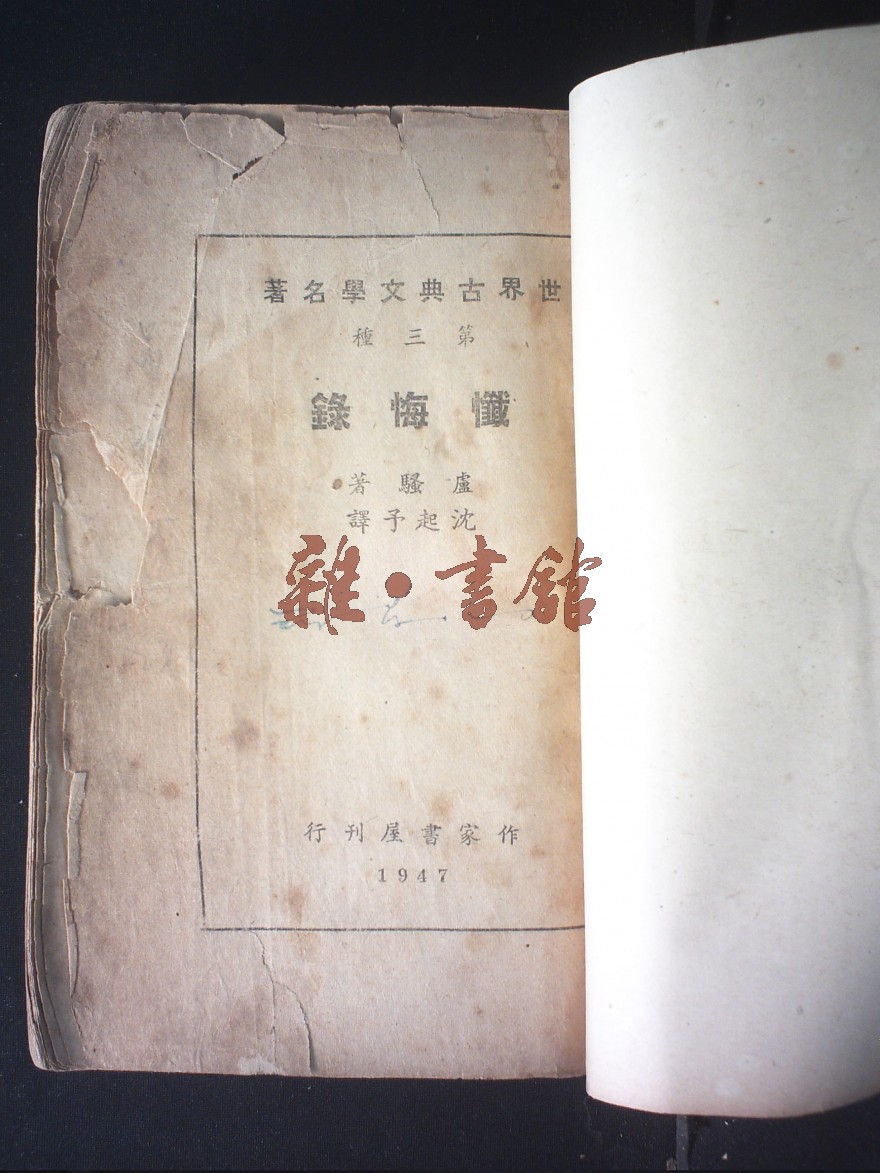 世界古典文學名著
第三種
懺悔錄
盧騷著
沈起予譯
雜·書館
作家書屋刊行
1947